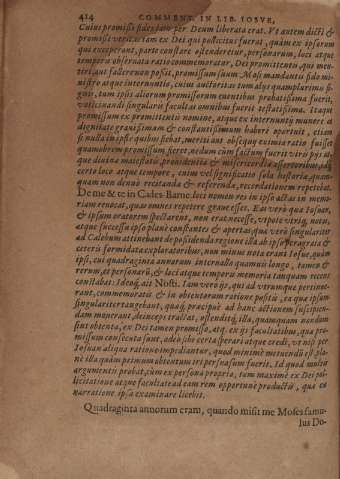 414 COMMENT. IN LIB. IOSVE,
Cuius promissi fides ante per Deum liberata erat. Vt autem dicti &
promissi veritatem ex Dei qui pollicitus fuerat, quàm ex ipsorum
qui exceperant, parte constare ostenderetur, personarum, loci atque
temporis obseruata ratio commemoratur, Dei promittentis, qui mentiri,
aut fallere non possit, promissum suum Mosi mandantis fido ministro
atque internuntio, cuius autoritas tum aliis quamplurimis signis,
tum ipsis aliorum promissorum euentibus probatissima fuerit,
vaticinandi singularis facultas omnibus fuerit testatissima. Itaque
promissum ex promittentis nomine, atque ex internuntij munere ac
dignitate grauissimum & constantissimum haberi oportuit, etiam
quamobrem promissum fieret, nedum cùm factum fuerit viris pijs atque
certo loco atque tempore, cuius vel significatio sola historia, quamquam
non denuò recitanda & referenda, recordationem repetebat.
De me & te in Cades-Barne. loci nomen res in ipso actas in memoriam
reuocat, quas omnes repetere graue esset. Eas verò qua Iosue,
& ipsum oratorem spectarent, non erat necesse, vtpote vtriq; notas,
atque successu ipso planè constantes & apertas: quæ verò singulariter
ad Calebum attinebant de possidenda regione illa ab ipso peragrata &
ceteris formidatæ exploratoribus, non minus nota erant Iosue, quàm
ipsi, cui quadraginta annorum interuallo quamuis longo, tamen &
rerum, & personarū, & loci atque temporis memoria tanquam recens
constabat: Ideoq; ait Nosti. Iam vero ijs, qui ad vtrumque pertinerent,
commemoratis & in obtentorum ratione positis, ea quæ ipsum
singularitertangebant, quæq; præcipuè ad hanc actionem suscipiendam
monerant, deinceps tractat, ostenditq; illa, quamquam nondum
sint obtenta, ex Dei tamen promisso, atq. ex ijs facultatibus, qua promissum
consecuta sunt, adeo sibi certa sperari atque credi, vt nisi per
Iosuam aliqua ratione impediantur, quod minimè metuendū est, planè
illa quàm primùm obtentum iri persuasum fuerit. Id quod multis
argumentis probat, cùm ex persona propria, tum maximè ex Dei pollicitatione
atque facultate ad eam rem opportunè productis, quæ ex
narratione ipsa examinare licebit.
Quadraginta annorum eram, quando misit me Moses famulus
Do-